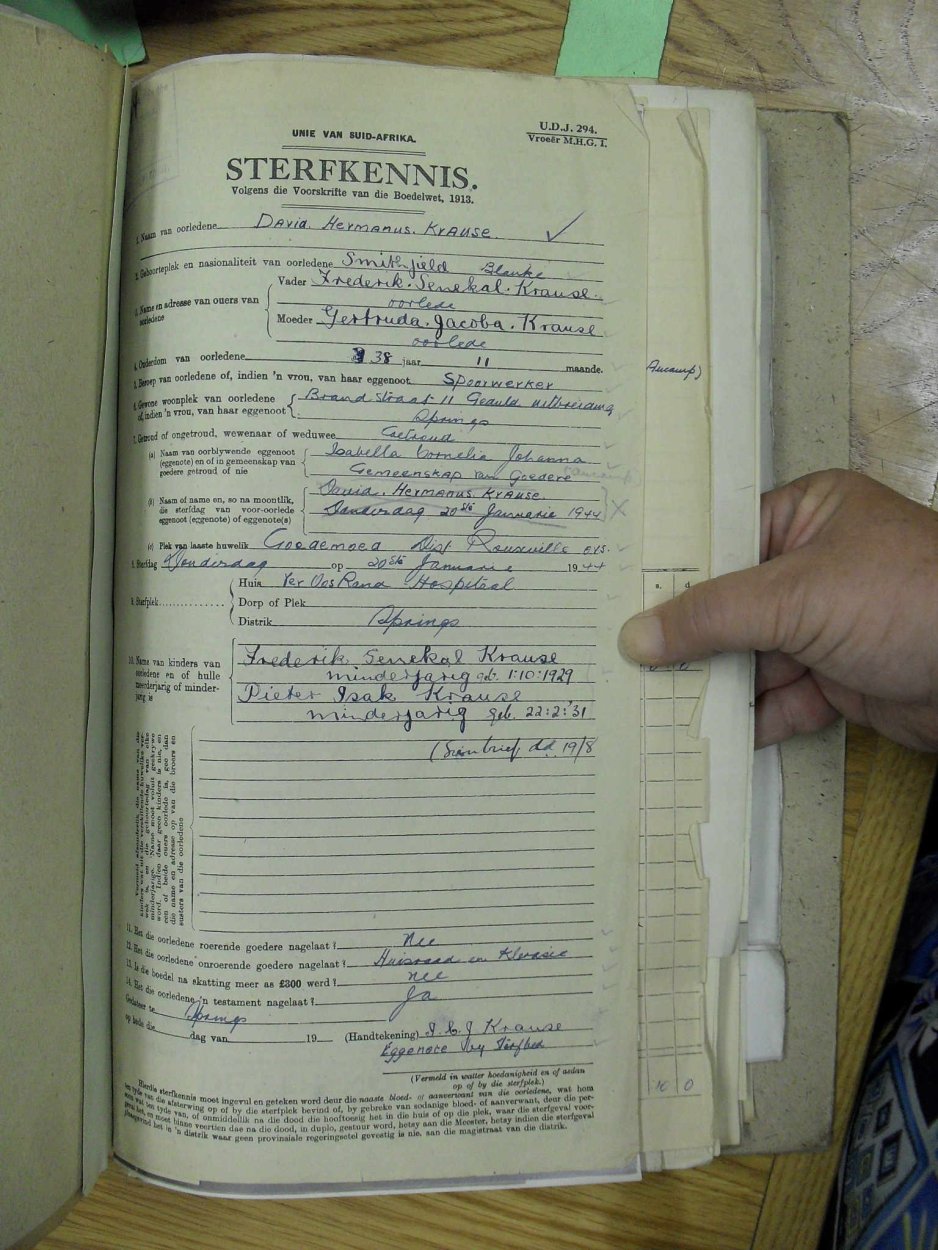 UNIE VAN SUID-AFRIKA.
U.D.J. 294.
Vroeër M.H.G. I.
STERFKENNIS.
Volgens die Voorskrifte van die Boedelwet, 1913.
1. Naam van oorledene David. Hermanus. Krause
2. Geboorteplek en nasionaliteit van oorledene Smithfield Blanke
3. Name en adresse van ouers van oorledene
Vader Frederik. Senekal. Krause.
oorlede
Moeder Gertruda. Jacoba. Krause
oorlede
4. Ouderdom van oorledene 38 jaar 11 maande.
5. Beroep van oorledene of, indien 'n vrou, van haar eggenoot Spoorwerker
6. Gewone woonplek van oorledene of, indien 'n vrou, van haar eggenoot
Brand straat 11 Geduld uitbreiding
Springs
7. Getroud of ongetroud, wewenaar of weduwee Getroud
(a) Naam van oorblywende eggenoot (eggenote) en of in gemeenskap van goedere getroud of nie
Isabella Cornelia Johanna
Gemeenskap van Goedere
(b) Naam of name en, so na moontlik, die sterfdag van voor-oorlede eggenoot (eggenote) of eggenote(s)
David. Hermanus. Krause.
Donderdag 20ste Januarie 1944
(c) Plek van laaste huwelik Goedemoed Dist Rouxville OVS.
8. Sterfdag Donderdag op 20ste Januarie 1944
9. Sterfplek
Huis Ver Oos Rand Hospitaal
Dorp of Plek
Distrik Springs
10. Name van kinders van oorledene en of hulle meerderjarig of minderjarig is
Frederik Senekal Krause
minderjarig geb. 1:10:1929
Pieter Isak Krause
minderjarig geb. 22:2:'31
brief dd. 19/8
11. Het die oorledene roerende goedere nagelaat? Nee
12. Het die oorledene onroerende goedere nagelaat? Huisraad en Klerasie
13. Is die boedel na skatting meer as £300 werd? Nee
14. Het die oorledene 'n testament nagelaat? Ja
Gedateer te Springs
op hede die dag van 19 (Handtekening) I. C. J Krause
Eggenote by Sterfbed
(Vermeld in watter hoedanigheid en of aedan op of by die sterfplek.)
Hierdie sterfkennis moet ingevul en geteken word deur die naaste bloed- of aanverwant van die oorledene, wat hom
ten tyde van die afsterwing op of by die sterfplek bevind of, by gebreke van sodanige bloed- of aanverwant, deur die per-
soon wat, ten tyde van, of onmiddellik na die dood die hooftoesig het in die huis of op die plek, waar die sterfgeval voor-
geval het, en moet binne veertien dae na die dood, in duplo, gestuur word, hetsy aan die Meester, hetsy indien die sterfgeval
plaasgevind het in 'n distrik waar geen provinsiale regeringsetel gevestig is nie, aan die magistraat van die distrik.
s. d.
10 0